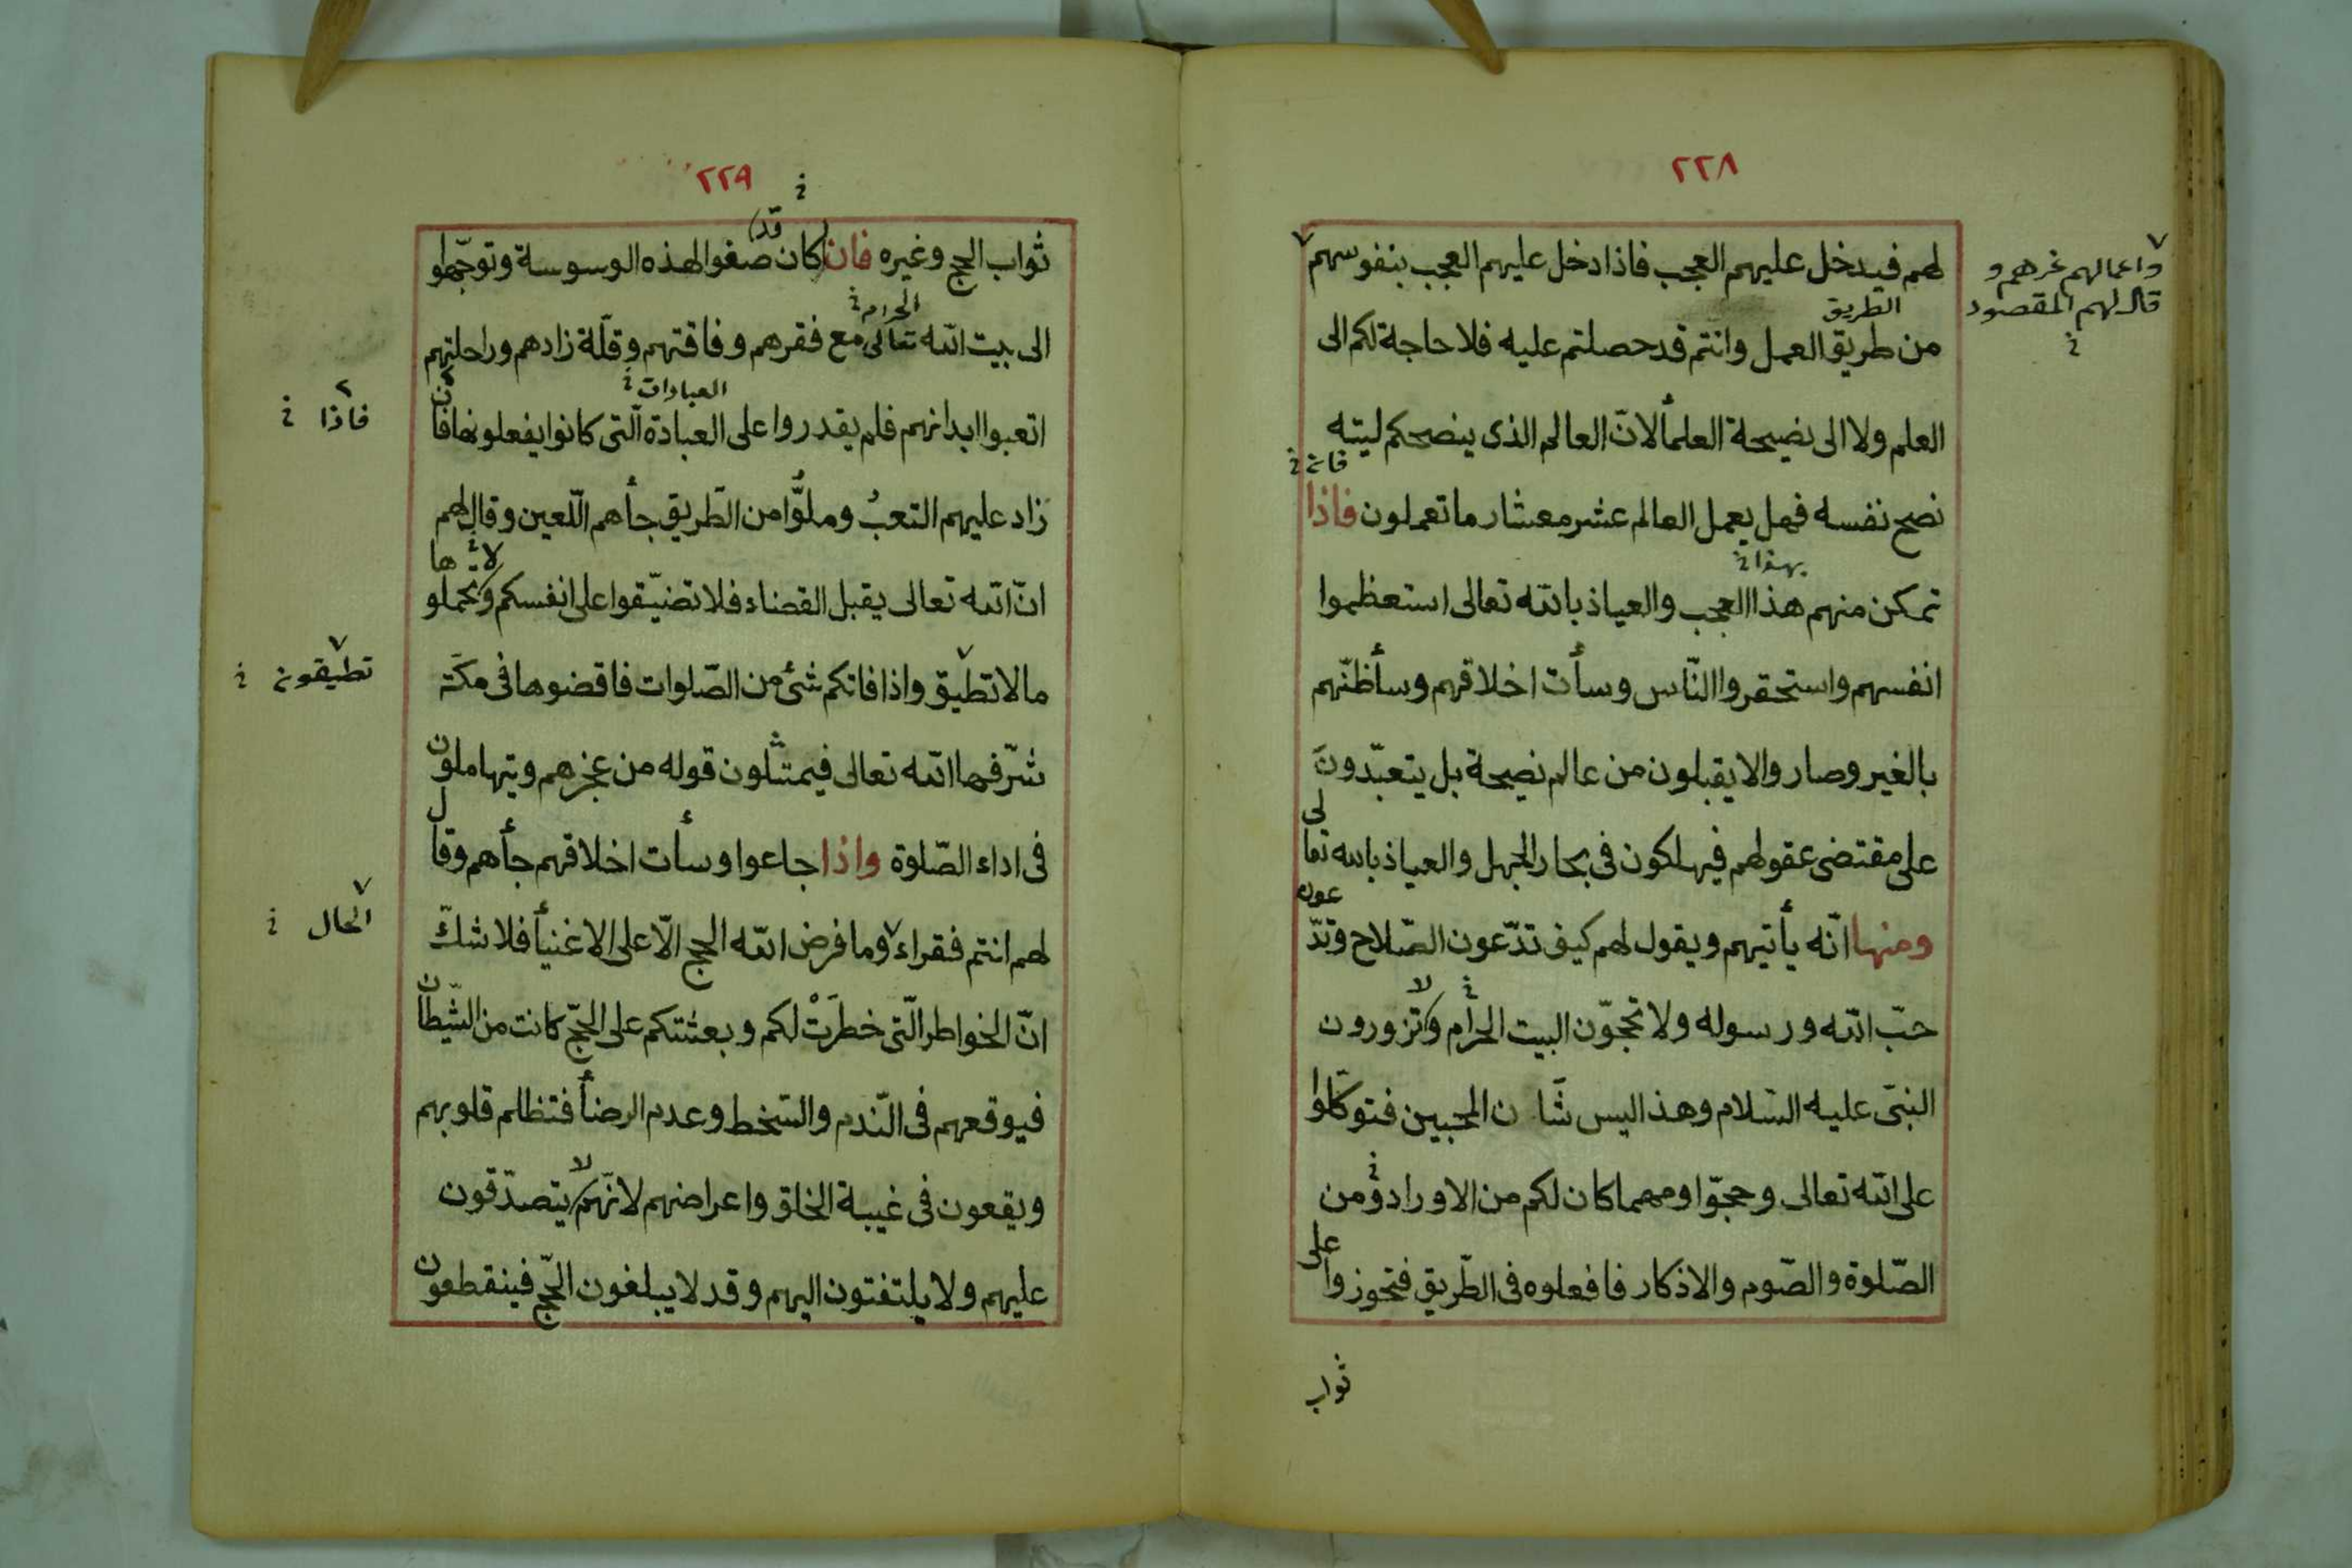 ٢٢٨
لهم فيدخل عليهم العجب فاذا دخل عليهم العجب بنفوسهم
واعمالهم غرهم و
قال لهم المقصود
خ
الطريق
من طريق العمل وانتم قد حصلتم عليه فلا حاجة لكم الى
العلم ولا الى نصيحة العلمأ لانّ العالم الذى ينصحكم ليته
فان خ
نصح نفسه فهل يعمل العالم عشر معشار ما تعملون فاذا
بهذا خ
تمكن منهم هذا العجب والعياذ بالله تعالى استعظموا
انفسهم واستحقروا النّاس وسأت اخلاقهم وسأظنّهم
بالغير وصاروا لا يقبلون من عالم نصيحة بل يتعبّدون
على مقتضى عقولهم فيهلكون فى بحار الجهل والعياذ بالله تعالى
ومنها انّه يأتيهم ويقول لهم كيف تدّعون الصّلاح وتدّعون
حبّ الله ورسوله ولا تحجّون البيت الحرام ولا تزورون
النبىّ عليه السّلام وهذا ليس شأن المحبين فتوكّلوا
على الله تعالى وحجّوا ومهما كان لكم من الاوراد ومن
الصّلوة والصّوم والاذكار فافعلوه فى الطّريق فتحوزوا على
ثواب
٢٢٩
خ
(قد)
ثواب الحج وغيره فان كان صغوا لهذه الوسوسة وتوجّهوا
الحرام خ
الى بيت الله تعالى مع فقرهم وفاقتهم وقلّة زادهم وراحلتهم
العبادات خ
اتعبوا ابدانهم فلم يقدروا على العبادة الّتى كانوا يفعلونها فان
فاذا خ
زاد عليهم التعبُ وملوُّا من الطّريق جأهم اللّعين وقال لهم
انّ الله تعالى يقبل القضاء فلا تضيّقوا على انفسكم ولا تحملوها
ما لا تطيق واذا فاتكم شئ من الصّلوات فاقضوها فى مكّة
تطيقون خ
شرّفها الله تعالى فيمتثلون قوله من عجزهم ويتهاملون
فى اداء الصّلوة واذا جاعوا وسأت اخلاقهم جأهم وقال
لهم انتم فقراء وما فرض الله الحج الّا على الاغنيأ فلا شكّ
الحال خ
انّ الخواطر الّتى خطرَتْ لكم وبعثتكم على الحجّ كانت من الشّيطان
فيوقعهم فى النّدم والسّخط وعدم الرضأ فتظلم قلوبهم
ويقعون فى غيبة الخلق واعراضهم لانّهم لا يتصدّقون
عليهم ولا يلتفتون اليهم وقد لا يبلغون الحجّ فينقطعون